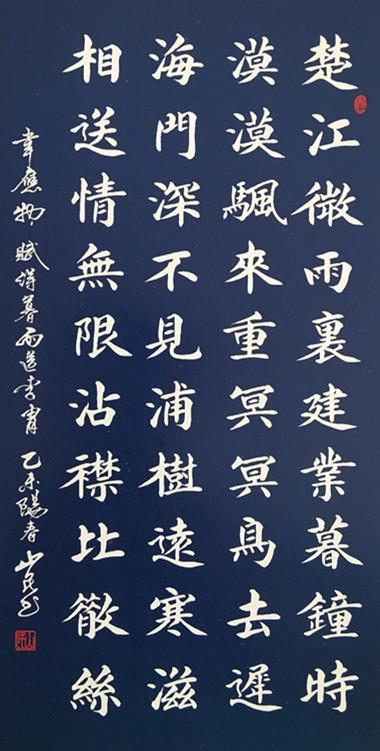 楚江微雨裏建業暮鐘時
漠漠颿來重冥冥鳥去遲
海門深不見浦樹遠寒滋
相送情無限沾襟比散絲
韋應物賦得暮雨送李冑 乙未陽春